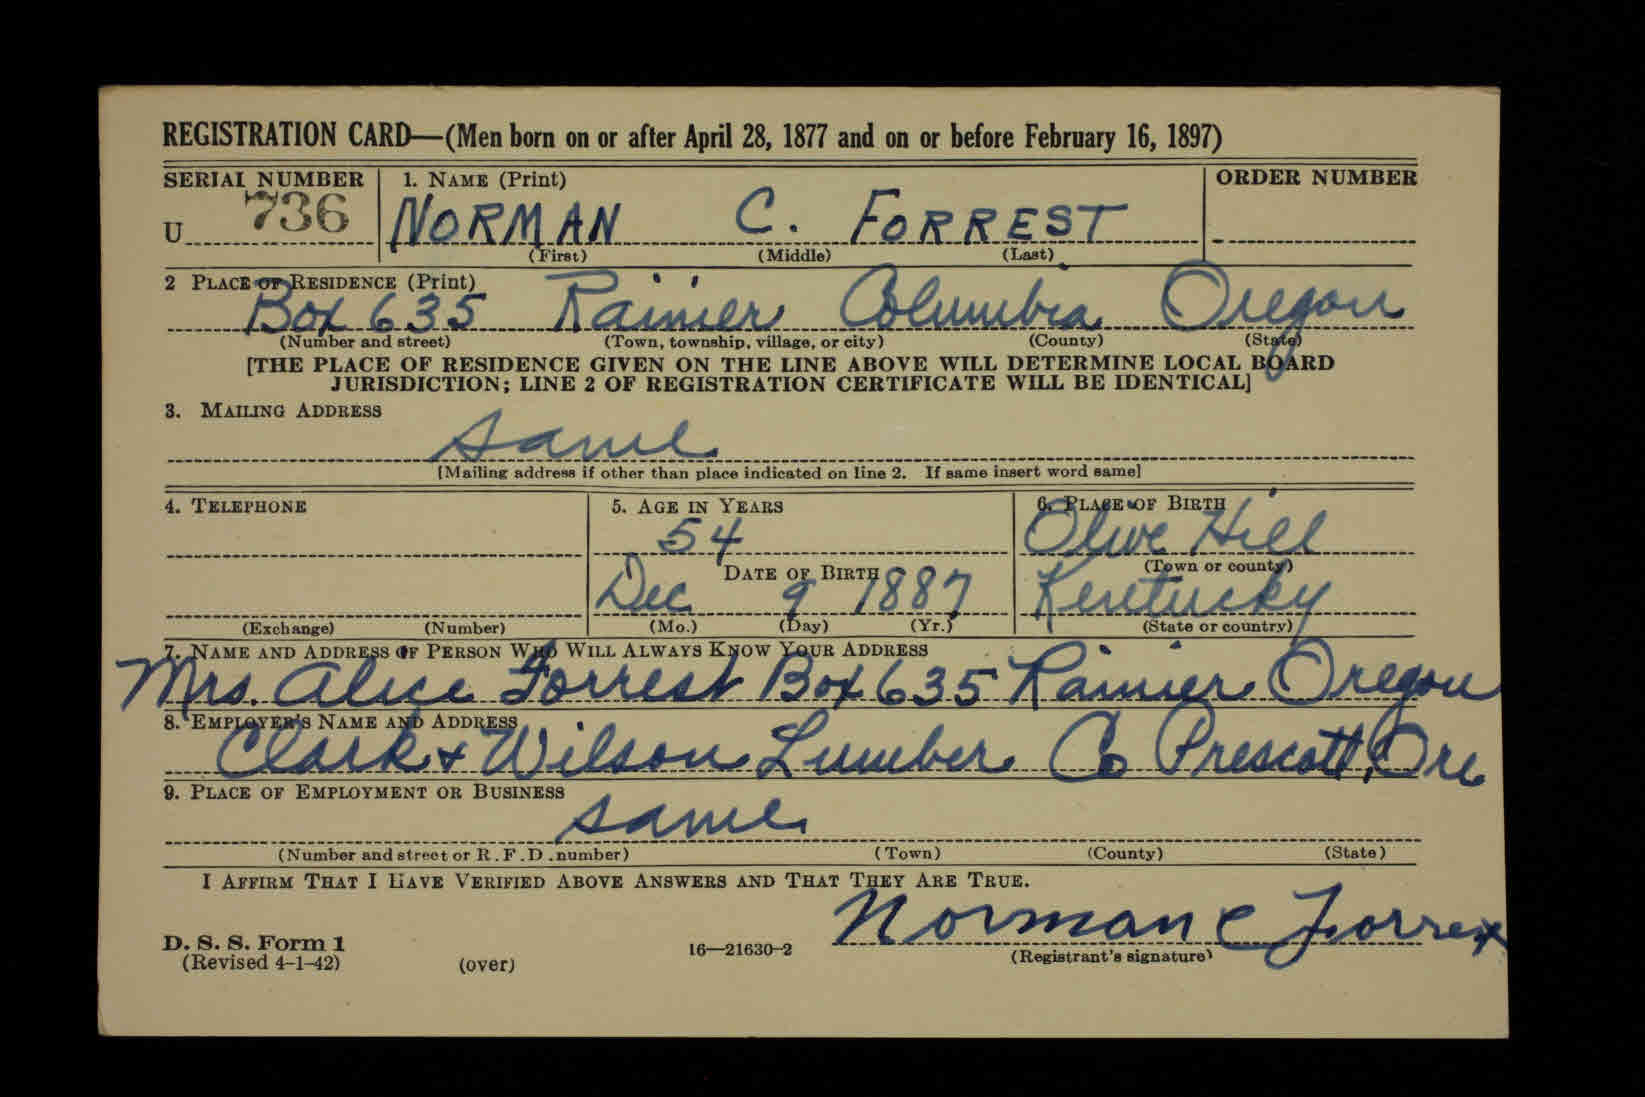 REGISTRATION CARD—(Men born on or after April 28, 1877 and on or before February 16, 1897)
SERIAL NUMBER 1. NAME (Print) ORDER NUMBER
U 736 NORMAN C. FORREST
(First) (Middle) (Last)
2 PLACE OF RESIDENCE (Print)
Box 635 Rainier Columbia Oregon
(Number and street) (Town, township, village, or city) (County) (State)
[THE PLACE OF RESIDENCE GIVEN ON THE LINE ABOVE WILL DETERMINE LOCAL BOARD
JURISDICTION; LINE 2 OF REGISTRATION CERTIFICATE WILL BE IDENTICAL]
3. MAILING ADDRESS
same
[Mailing address if other than place indicated on line 2. If same insert word same]
4. TELEPHONE 5. AGE IN YEARS 6. PLACE OF BIRTH
54 Olive Hill
DATE OF BIRTH (Town or county)
Dec 9 1887 Kentucky
(Exchange) (Number) (Mo.) (Day) (Yr.) (State or country)
7. NAME AND ADDRESS OF PERSON WHO WILL ALWAYS KNOW YOUR ADDRESS
Mrs. Alice Forrest Box 635 Rainier Oregon
8. EMPLOYER'S NAME AND ADDRESS
Clark + Wilson Lumber Co Prescott, Ore
9. PLACE OF EMPLOYMENT OR BUSINESS
same
(Number and street or R. F. D. number) (Town) (County) (State)
I AFFIRM THAT I HAVE VERIFIED ABOVE ANSWERS AND THAT THEY ARE TRUE.
Norman C Forrest
D. S. S. Form 1 16—21630-2 (Registrant's signature)
(Revised 4-1-42) (over)